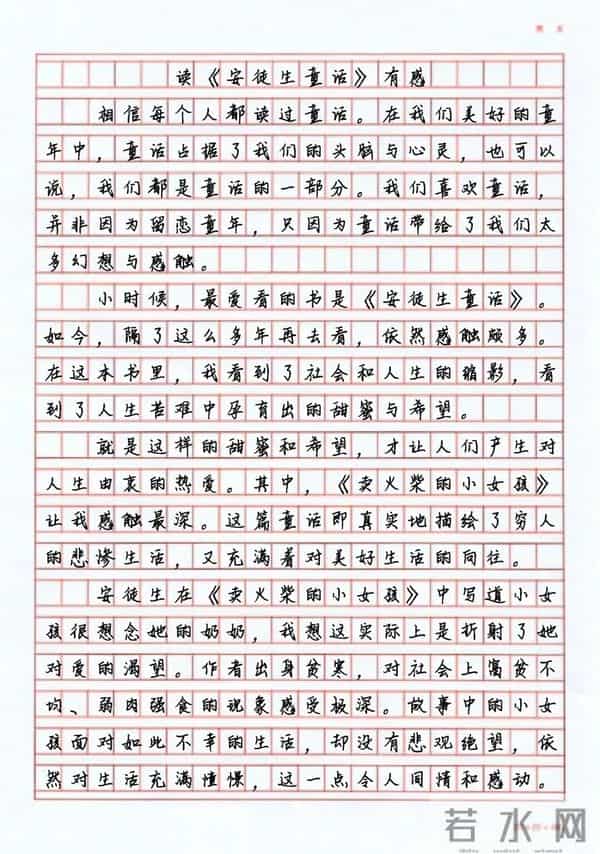 读《安徒生童话》有感
相信每个人都读过童话。在我们美好的童
年中，童话占据了我们的头脑与心灵，也可以
说，我们都是童话的一部分。我们喜欢童话，
并非因为留恋童年，只因为童话带给了我们太
多幻想与感触。
小时候，最爱看的书是《安徒生童话》。
如今，隔了这么多年再去看，依然感触颇多。
在这本书里，我看到了社会和人生的缩影，看
到了人生苦难中孕育出的甜蜜与希望。
就是这样的甜蜜和希望，才让人们产生对
人生由衷的热爱。其中，《卖火柴的小女孩》
让我感触最深。这篇童话即真实地描绘了穷人
的悲惨生活，又充满着对美好生活的向往。
安徒生在《卖火柴的小女孩》中写道小女
孩很想念她的奶奶，我想这实际上是折射了她
对爱的渴望。作者出身贫寒，对社会上富贫不
均、弱肉强食的现象感受极深。故事中的小女
孩面对如此不幸的生活，却没有悲观绝望，依
然对生活充满憧憬，这一点令人同情和感动。
若水网